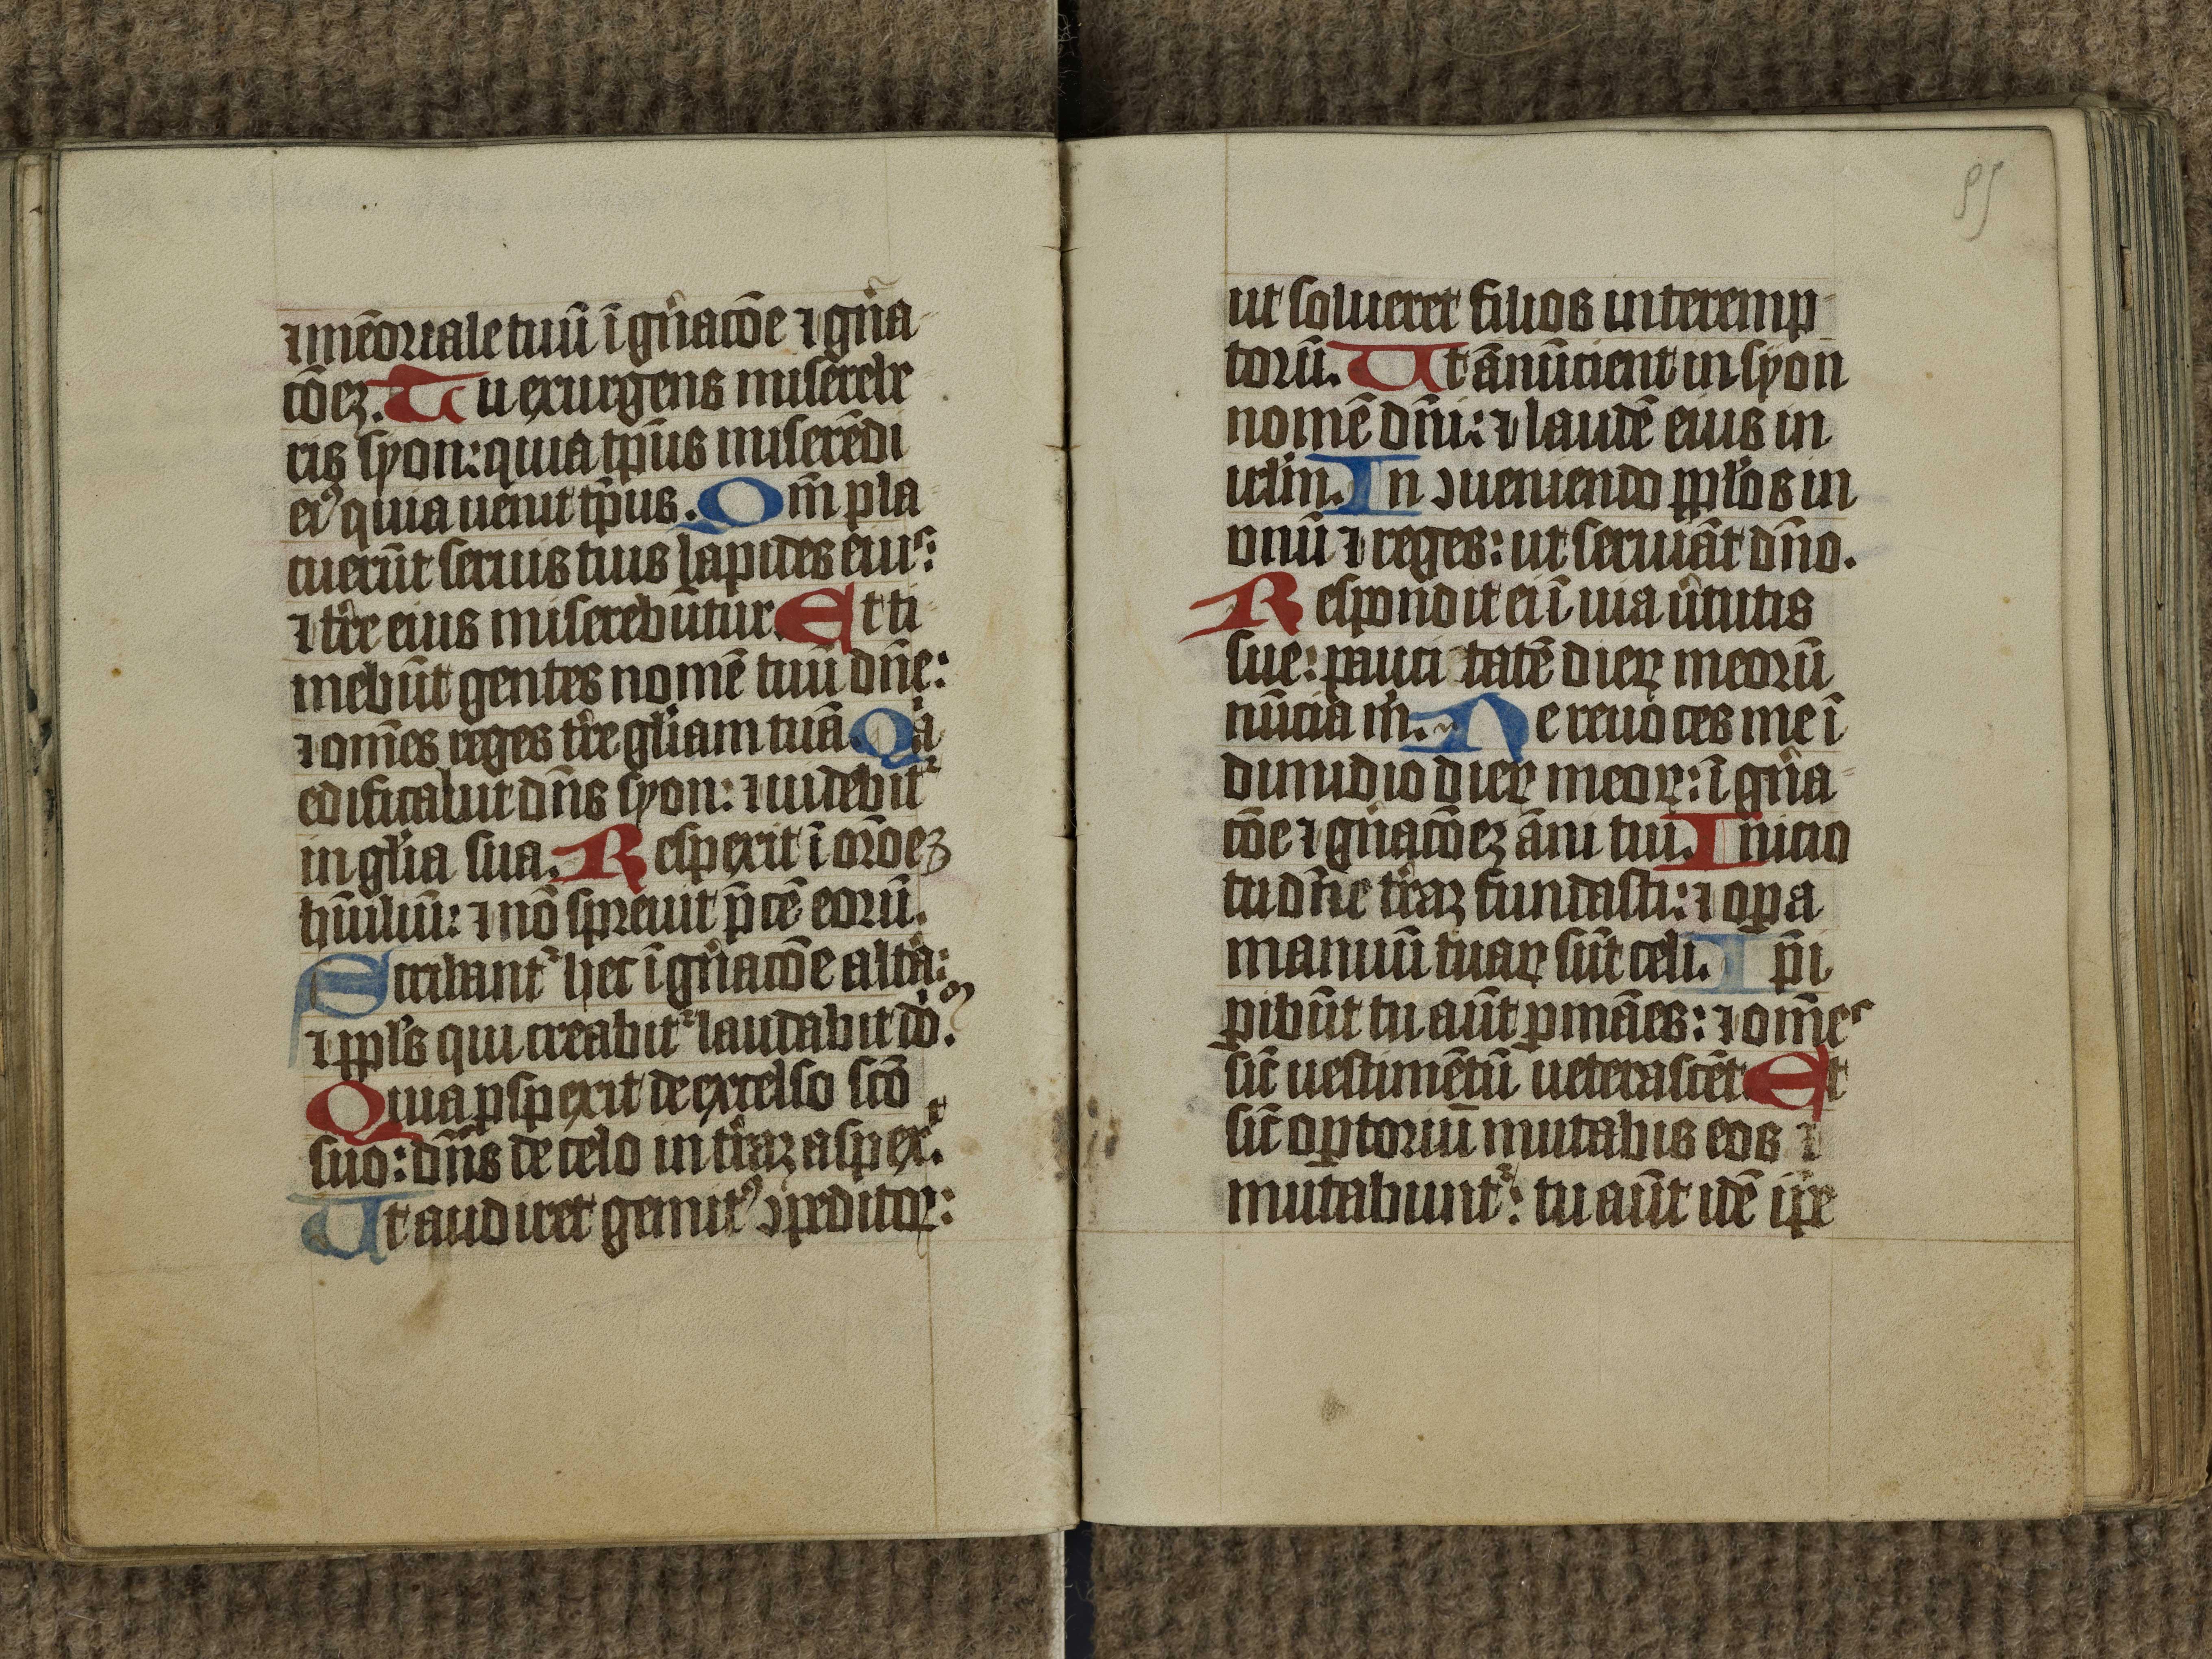 ⁊ mēoriale tuū ī gn̄acōe ⁊ gn̄a
cōeꝫ. Tu exurgens misereb̄
ris syon: quia tp̄us miserēdi
eiꝰ quia uenit tp̄us. Qm̄ pla
cuerūt seruis tuis lapides eius:
⁊ tr̄e eius miserebūtur. Et ti
mebūt gentes nomē tuū dn̄e:
⁊ om̄es reges tr̄e gl̄iam tuā. Qͥa
edificabit dn̄s syon: ⁊ uidebit᷑
in gl̄ia sua. Respexit ī or̄oeꝫ
hūiliū: ⁊ nō spreuit p̄cē eorū.
Scribant᷑ hec ī gn̄acōe altͣa:
⁊ ppl̄s qui creabit᷑ laudabit dō̄.
Quia ꝓspexit de excelso scō
suo: dn̄s de celo in tr̄aꝫ aspexͭ.
Ut audiret gemitꝰ ꝯpeditoꝝ:
85
ut solueret filios interemp
torū. Ut ānūcient in syon
nomē dn̄i: ⁊ laudē eius in
irl̄m. In ꝯueniendo ppl̄os in
unū ⁊ reges: ut seruiāt dn̄o.
Respondit ei ī uia ūtutis
sue: pauci tatē dieꝝ meorū
nūcia m̄. Ne reuoces me ī
dimidio dieꝝ meoꝝ: ī gn̄a
cōe ⁊ gn̄acōeꝫ āni tui. Inicio
tu dn̄e tr̄aꝫ fundasti: ⁊ oꝑa
manuū tuaꝝ sūt celi. Ip̄i
ꝑibūt tu aūt ꝑmāes: ⁊ om̄es
sic̄ uestimētū ueterascēt Et
sic̄ oꝑtoriū mutabis eos ⁊
mutabunt᷑: tu aūt idē ip̄e